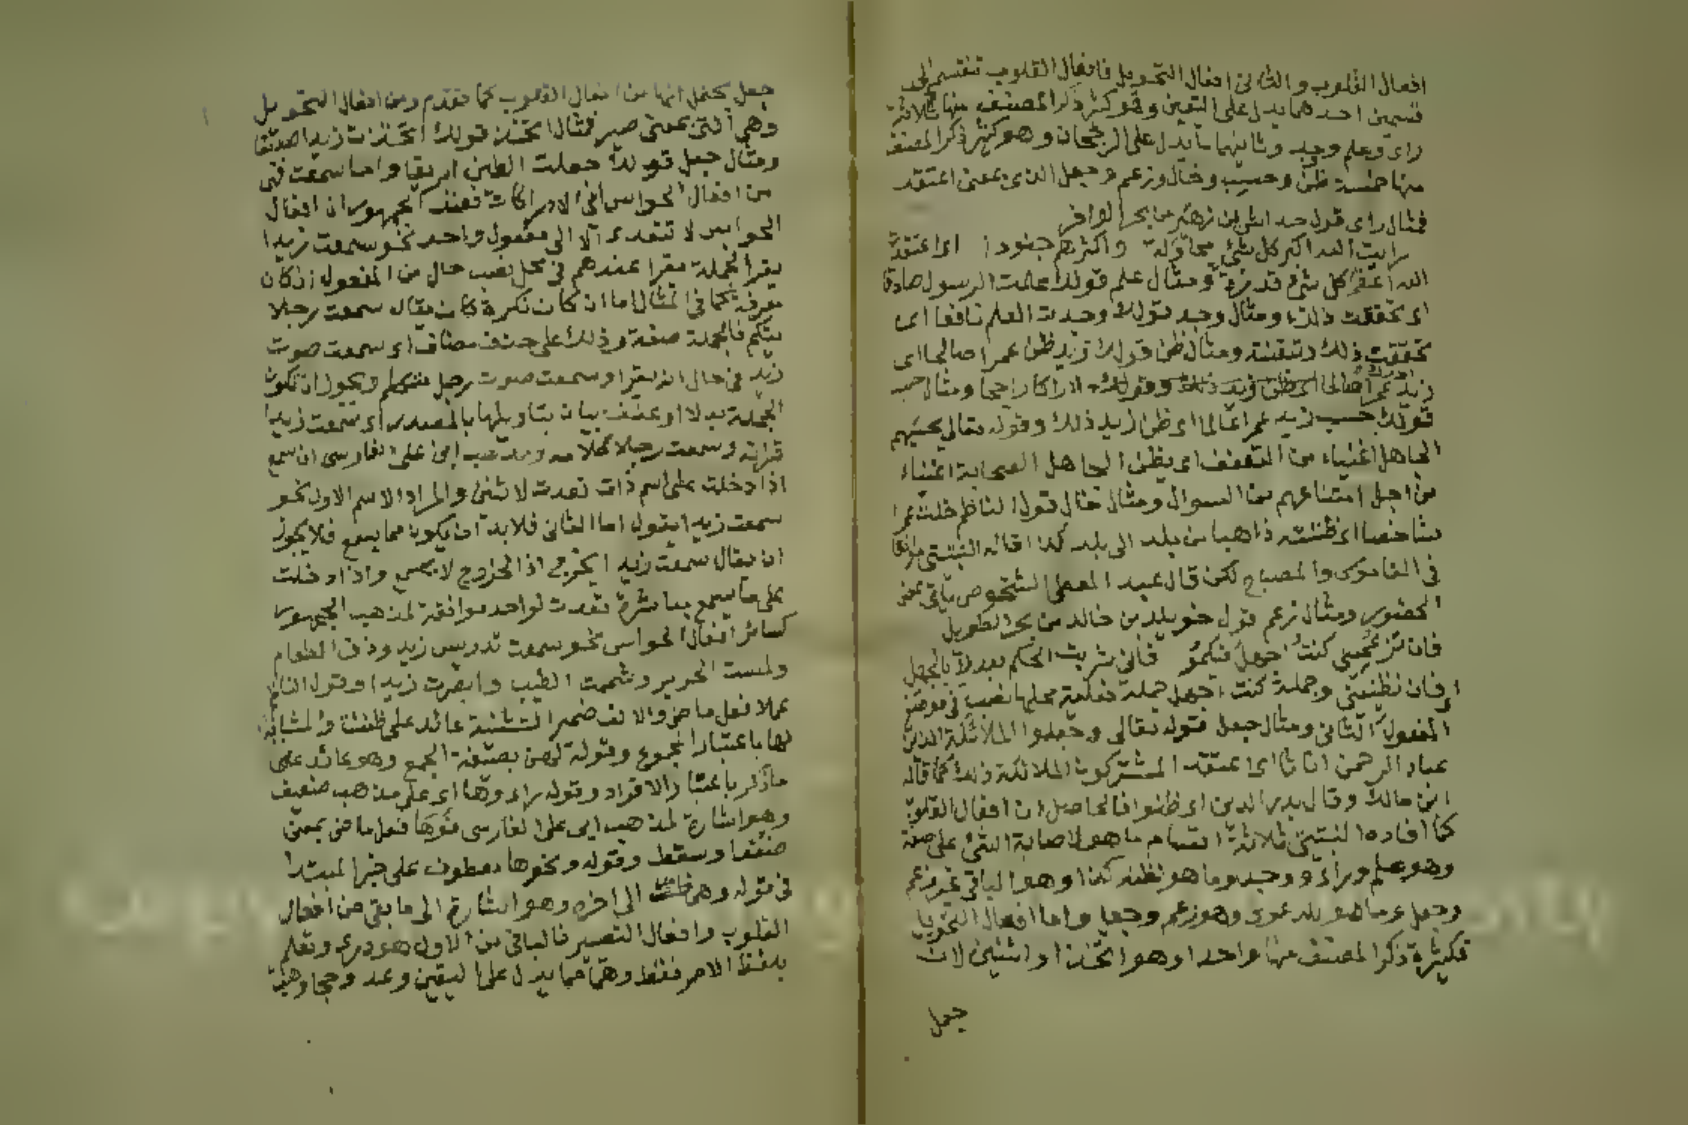 افعال القلوب والثاني افعال التحويل فافعال القلوب تنقسم الى
قسمين احدهما يدل على اليقين وهو كثير ذكر المصنف منها ثلاثة
راى وعلم ووجد وثانيهما ما يدل على الرجحان وهو كثير ذكر المصنف
منها خمسة ظن وحسب وخال وزعم وجعل الذي بمعنى اعتقد
فمثال راى قول خداش بن زهير من بحر الوافر
رايت الله اكبر كل شئ محاولة واكثرهم جنودا اى اعتقدت
الله اعظم كل شئ قدرة ومثال علم قولك علمت الرسول صادقا
اى تحققت ذلك ومثال وجد قولك وجدت العلم نافعا اى
تحققت ذلك وتيقنته ومثال ظن قولك زيد ظن عمرا صالحا اى
زيد عمرا صالحا اى ظن زيد ذلك وقولك ادراكا راجحا ومثال حسب
قولك حسب زيد عمرا عالما اى ظن زيد ذلك وقوله تعالى يحسبهم
الجاهل اغنياء من التعفف اى يظن الجاهل الصحابة اغنياء
من اجل امتناعهم من السوال ومثال خال قول الناظم خلت عمرا
شاخصا اى ظننته ذاهبا من بلد الى بلد كذا قاله النبتيتي موافقا
في القاموس والمصباح لكن قال عبد المعطي الشخوص ياتي بمعنى
الحضور ومثال زعم قول خويلد بن خالد من بحر الطويل
فان تزعميني كنت اجهل فيكمو فاني شريت الحلم بعدك بالجهل
اى فان تظنيني وجملة كنت اجهل جملة فعلية محلها نصب في موضع
المفعول الثاني ومثال جعل قوله تعالى وجعلوا الملائكة الذين هم
عباد الرحمن اناثا اى اعتقد المشركون الملائكة ذلك كما قاله
ابن مالك وقال بدر الدين اى ظنوا فالحاصل ان افعال القلوب
كما افاده النبتيتي ثلاثة اقسام ما هو لاصابة الشئ على صفة
وهو علم وراى ووجد وما هو نظنه كذا وهو الباقي غير زعم
وجعل وما هو للدعوى وهو زعم وجعل واما افعال التحويل
فكثيرة ذكر المصنف منها واحدا وهو اتخذ او اثنين لان
جعل
جعل يحتمل انها من افعال القلوب كما تقدم ومن افعال التحويل
وهي التي بمعنى صير فمثال اتخذ قولك اتخذت زيدا صديقا
ومثال جعل قولك جعلت الطين ابريقا واما سمعت فهي
من افعال الحواس اى الادراكات فعند الجمهور ان افعال
الحواس لا تتعدى الا الى مفعول واحد نحو سمعت زيدا
يقرا فجملة يقرا عندهم في محل نصب حال من المفعول اذ كان
معرفة كما في المثال اما ان كان نكرة كان يقال سمعت رجلا
يتكلم فالجملة صفة وذلك على حذف مضاف اى سمعت صوت
زيد في حال انه يقرا وسمعت صوت رجل متكلم ويجوز ان تكون
الجملة بدلا او عطف بيان بتاويلها بالمصدر اى سمعت زيدا
قراءته وسمعت رجلا كلامه ومذهب ابي على الفارسى ان سمع
اذا دخلت على اسم ذات تعدت لاثنين والمراد الاسم الاول نحو
سمعت زيدا يقول اما الثاني فلابد ان يكون مما يسمع فلا يجوز
ان يقال سمعت زيدا يخرج اذ الخروج لا يسمع واذا دخلت
على ما يسمع مباشرة تعدت لواحد موافقة لمذهب الجمهور
كسائر افعال الحواس نحو سمعت تدريس زيد وذقت الطعام
ولمست الحرير وشممت الطيب وابصرت زيدا وقول الناظم
عملا فعل ماض والالف ضمير التثنية عائد على ظننت والمشابه
لها باعتبار المجموع وقوله لهن بصيغة الجمع وهو عائد على
ماذكر باعتبار الافراد وقوله راى وها اى على مذهب ضعيف
وهو اشارة لمذهب ابي على الفارسى فوها فعل ماض بمعنى
ضعف وسقط وقوله ونحوها معطوف على خبر المبتدا
في قوله وهى ظننت الى اخره وهو اشارة الى ما بقي من افعال
القلوب وافعال التصيير فالباقي من الاول هو درى وتعلم
بلفظ الامر فقط وهما مما يدل على اليقين وعد وحجا وهب